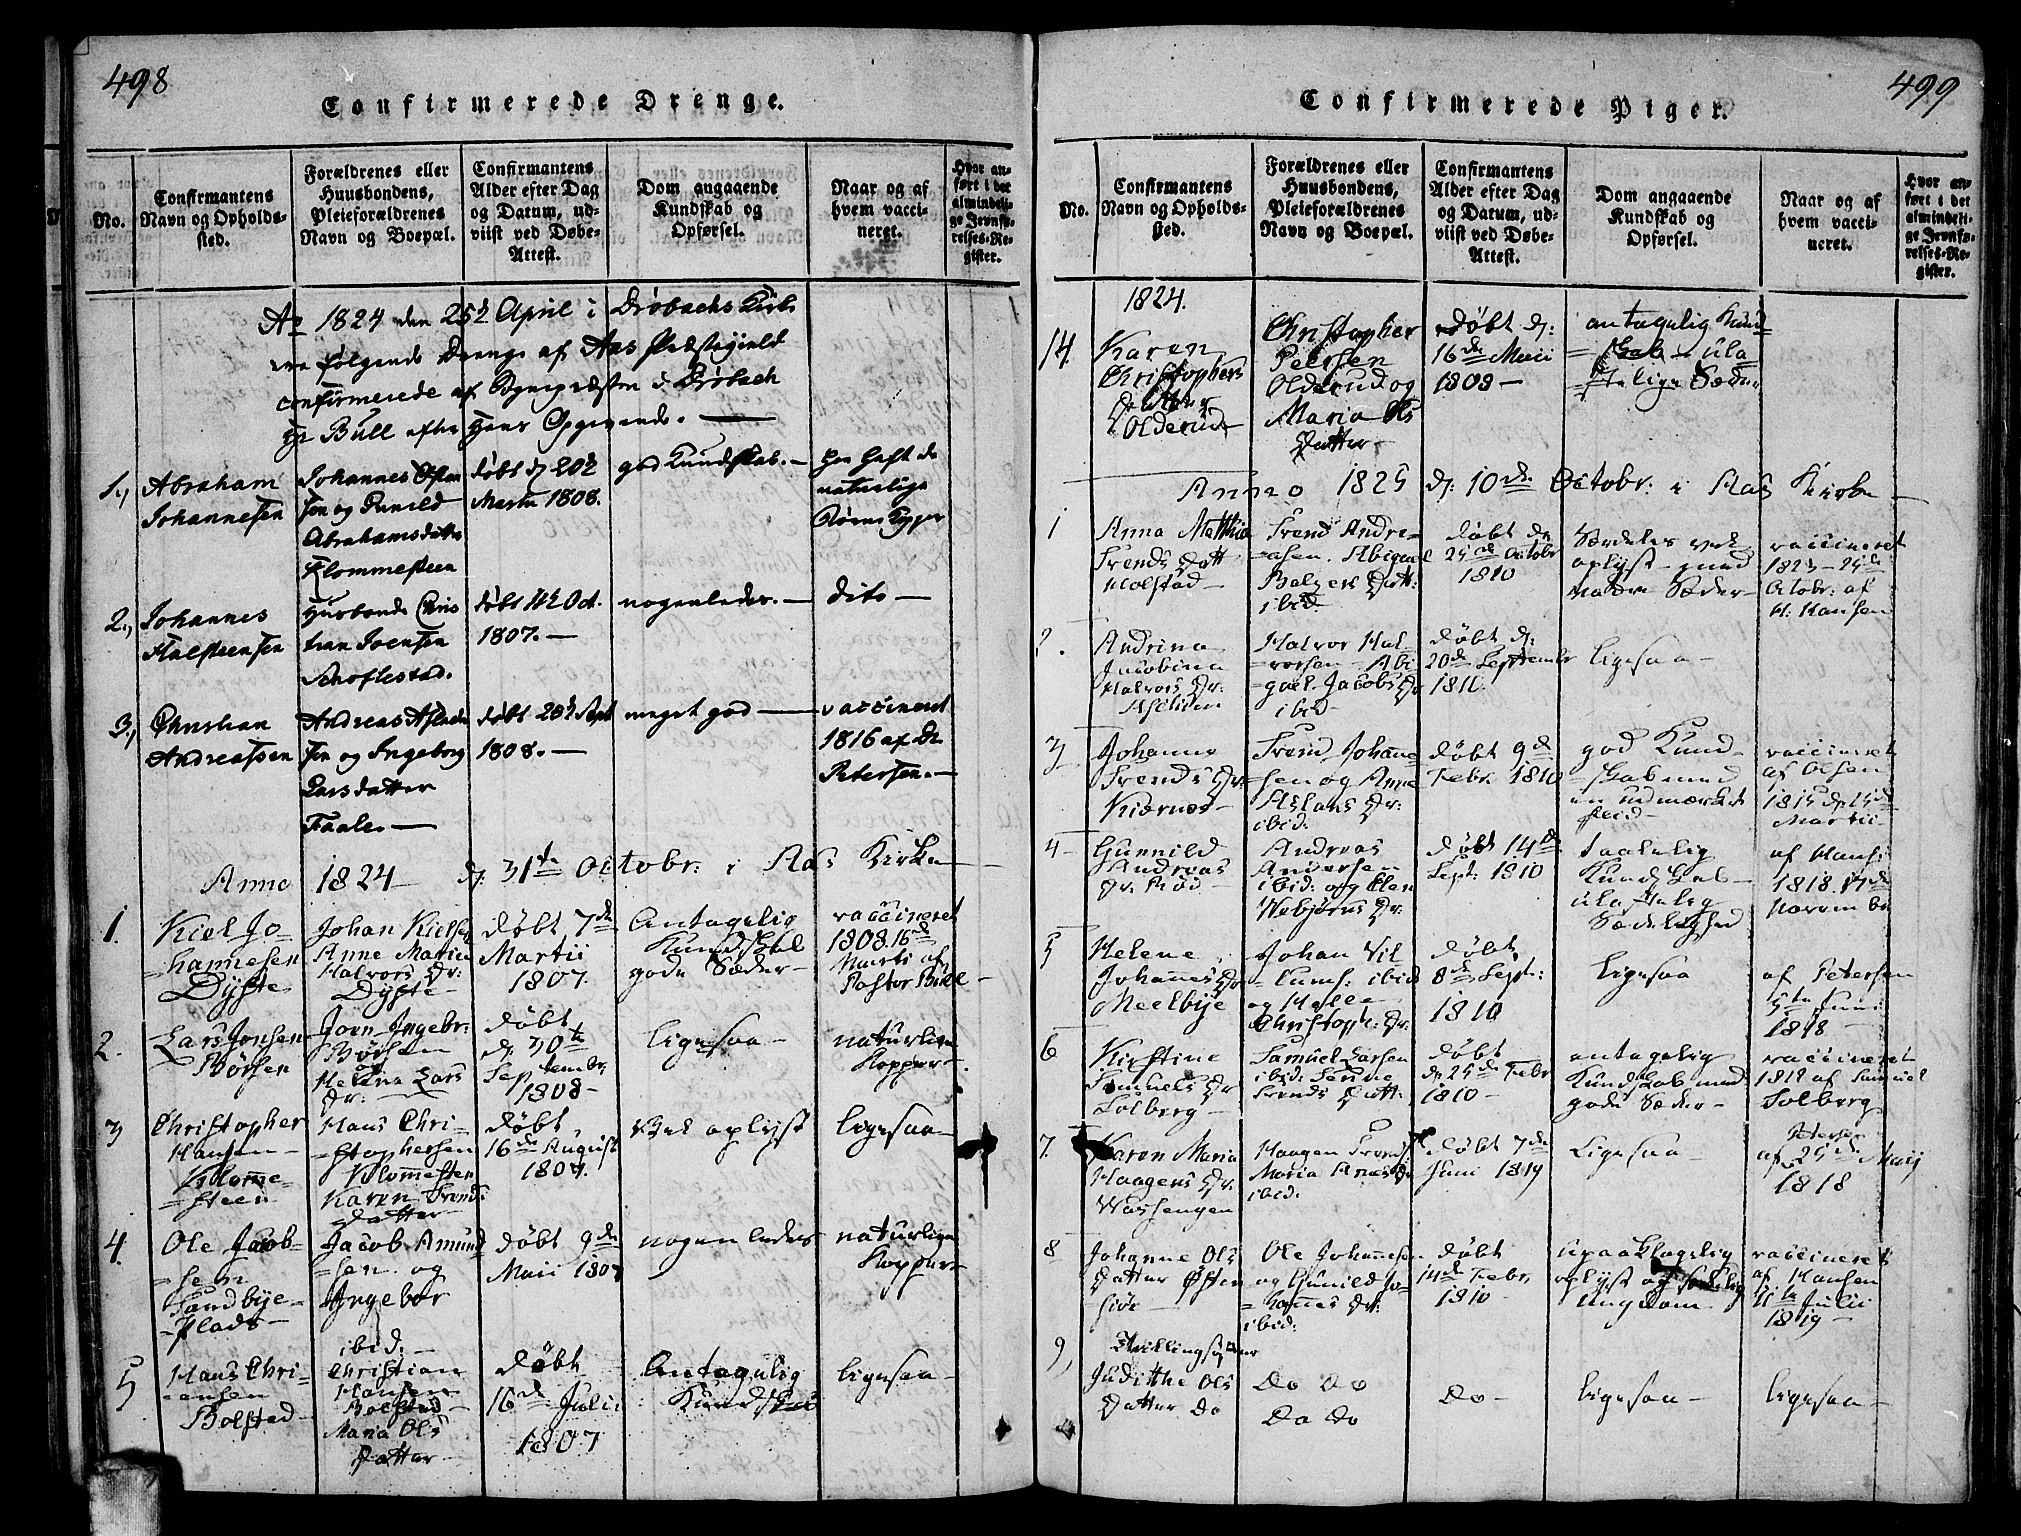 498
Confirmerede Drenge.
No.
Confirmantens
Navn og Opholds-
sted.
Forældrenes eller
Huusbondens,
Pleieforældrenes
Navn og Boepæl.
Confirmantens
Alder efter Dag
og Datum, ud-
viist ved Døbe-
Attest.
Dom angaaende
Kundskab og
Opførsel.
Naar og af
hvem vacci-
neret.
Hvor an-
ført i det
almindeli-
ge Jevnfø-
relses-Re-
gister.
Ao 1824 den 25de April i Drøbachs Kirke
ere følgende Drenge af Aas Præstegield
confirmerede af Sognepræsten i Drøbach
Hr Bull efter Hans Opgivende.
1.,
Abraham
Johannesen
Johannes Østen
sen og Gunild
Abrahamsdatter
Klommesteen
døbt d 20de
Martii 1808.
god Kundskab.
har haft de
naturlige
Børne Kopper
2.,
Johannes
Halsteensen
Husbonde Chris
tian Joensen
Schoflestad.
døbt 14de Oct.
1807.
nogenledes.
dito
3.,
Christian
Andreassen
Andreas Aslack
sen og Ingeborg
Larsdatter
Faale.
døbt 28de Sept
1808.
meget god
vaccineret
1816 af Dr
Petersen.
Anno 1824 d: 31te Octobr: i Aas Kirke
1.
Kiel Jo
=hannesen
Dyste
Johan Kielsen
Anne Marie
Halvors Dr:
Dyste
døbt 7de
Martii
1807.
Antagelig
Kundskab
gode Sæder
vaccineret
1808. 16de
Marti af
Pastor Bull
2.
Lars Jonsen
Børsen
Jorn Ingebr:
Børsen
og
Helena Lars
Dr:
døbt
d: 30te
September
1808
ligesaa
naturlige
Kopper
3
Christopher
Hansen
Klomme
=steen
Hans Chri
=stophersen
Klommesten
Karen Trends
Datter
døbt
16de August
1807.
Vel oplyst
ligesaa
4.
Ole Jacob-
=sen
Sandbye-
-plads
Jacob Amund
=sen og
Ingebor
ibid:
døbt 9de
Maii 1807
nogenledes
naturlige
Kopper
5
Hans Chri-
=ansen
Bolstad
Christian
Hansen
Bolstad
Maria Ols
Datter
døbt
16de Julii
1807
Antagelig
Kundskab
ligesaa
499
Confirmerede Piger.
No.
Confirmantens
Navn og Opholds-
sted.
Forældrenes eller
Huusbondens,
Pleieforældrenes
Navn og Boepæl.
Confirmantens
Alder efter Dag
og Datum, ud-
viist ved Døbe-
Attest.
Dom angaaende
Kundskab og
Opførsel.
Naar og af
hvem vacci-
neret.
Hvor an-
ført i det
almindeli-
ge Jevnfø-
relses-Re-
gister.
1824.
14
Karen
Christophers
Datter
Olderud
Christopher
Petersen
Olderud og
Maria Ols
Datter
døbt d:
16de Maii
1808
antagelig Kund
=skab - ula
=stelige Sæder
Anno 1825 d: 10de Octobr: i Aas Kirke
1
Anna Matthia
Trends Datt
Holstad
Trend Andre=
=asen. Abigael
Balzers Datt:
ibid
døbt de
25de Octobr
1810
Særdeles vel
oplyst - gud
Sæder
vaccineret
1823 - 25de
Octobr: af
H: Hansen
2.
Andrina
Jacobina
Halvors Dr:
Asliden
Halvor Hal
=vorsen Abi
=gael. Jacobs Dr
ibid
døbt d:
20de September
1810
ligesaa
3
Johanne
Trends Dr:
Kiærnes
Trend Johanne
=sen og Anne
Aslaks Dr:
ibid:
døbt 9de
Febr: 1810
god Kund
=skab med
en udmærket
fliid
vaccineret
af Olsen
1815 d: 25de
Martii
4
Gunnild
Andreas
Dr: Aas
Andreas
Andersen
ibid: og Elen
Webjørns Dr:
døbt 14de
Sept: 1810
taalelig
Kundskab
ulastelig
Sædelighed
af Hans:
1818. 17de
Novembr
5
Helene
Johanes Dr
Meelbye
Johan Vil
=lums: ibid
og Helle
Christoph: Dr:
døbt
8de Sept:
1810
ligesaa
af Petersen
5te Juni
1818
6
Kirstine
Samuels Dr
Solberg
Samuel Larsen
ibid:
Trends Datt:
døbt
d: 25de Febr
1810
antagelig
Kundskab med
gode Sæder
vaccineret
1812 af Samuel
Solberg
7.
Karen Maria
Haagens Dr:
Wassengen
Haagen Trends
Maria Anes Dr
ibid:
døbt 7de
Juni 1809
Ligesaa
Petersen
af 25de Maij
1818
8
Johanne Ols
Datter Østen
siøe
Ole Johannesen
og Gunild Jo=
=hannes Dr:
ibid:
døbt
14de Febr
1810
upaaklagelig
oplyst og sædelig
Ungdom
vaccineret
af Hansen
11te Julii
1819
9,
Tvillingsøster
Judithe Ols
Datter Do
Do Do
Do Do
Do
ligesaa
ligesaa